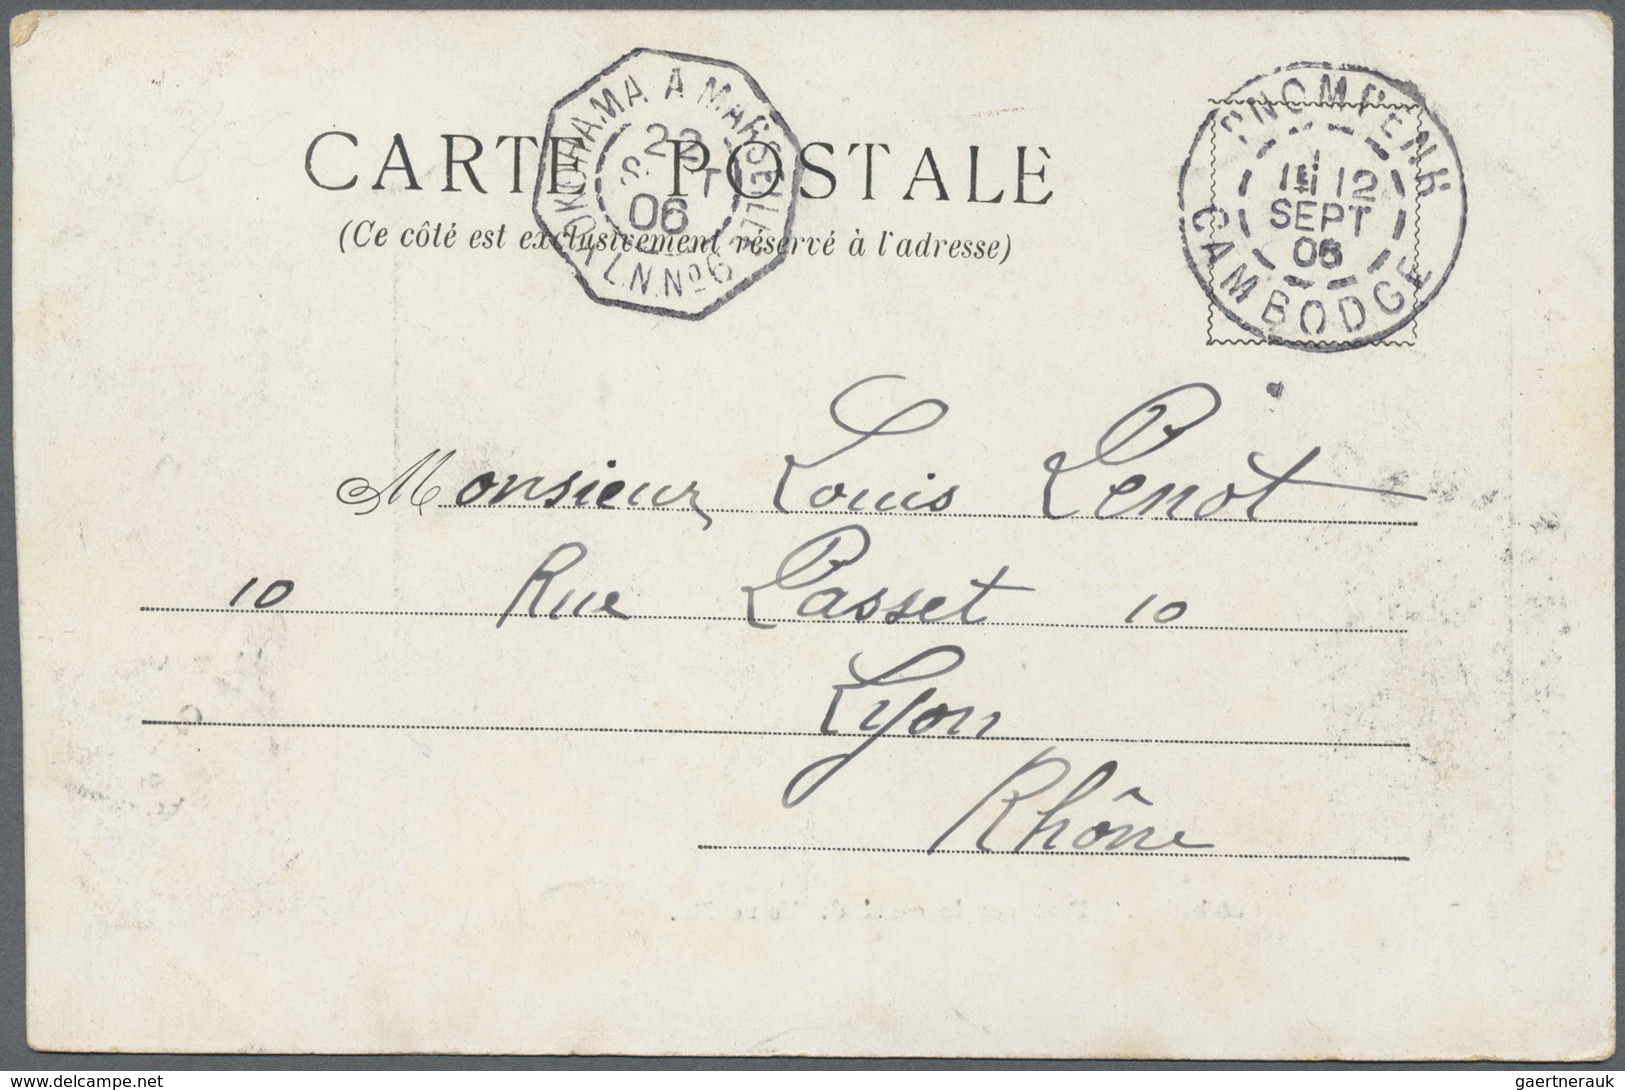 YOKOHAMA A MARSEILLE
22
SEPT
06
L.N.Nº6
PNOMPENH
12
SEPT
06
CAMBODGE
CARTE POSTALE
(Ce côté est exclusivement réservé à l'adresse)
Monsieur Louis Lenot
10 Rue Passet 10
Lyon
Rhône
www.delcampe.net
gaertnerauk